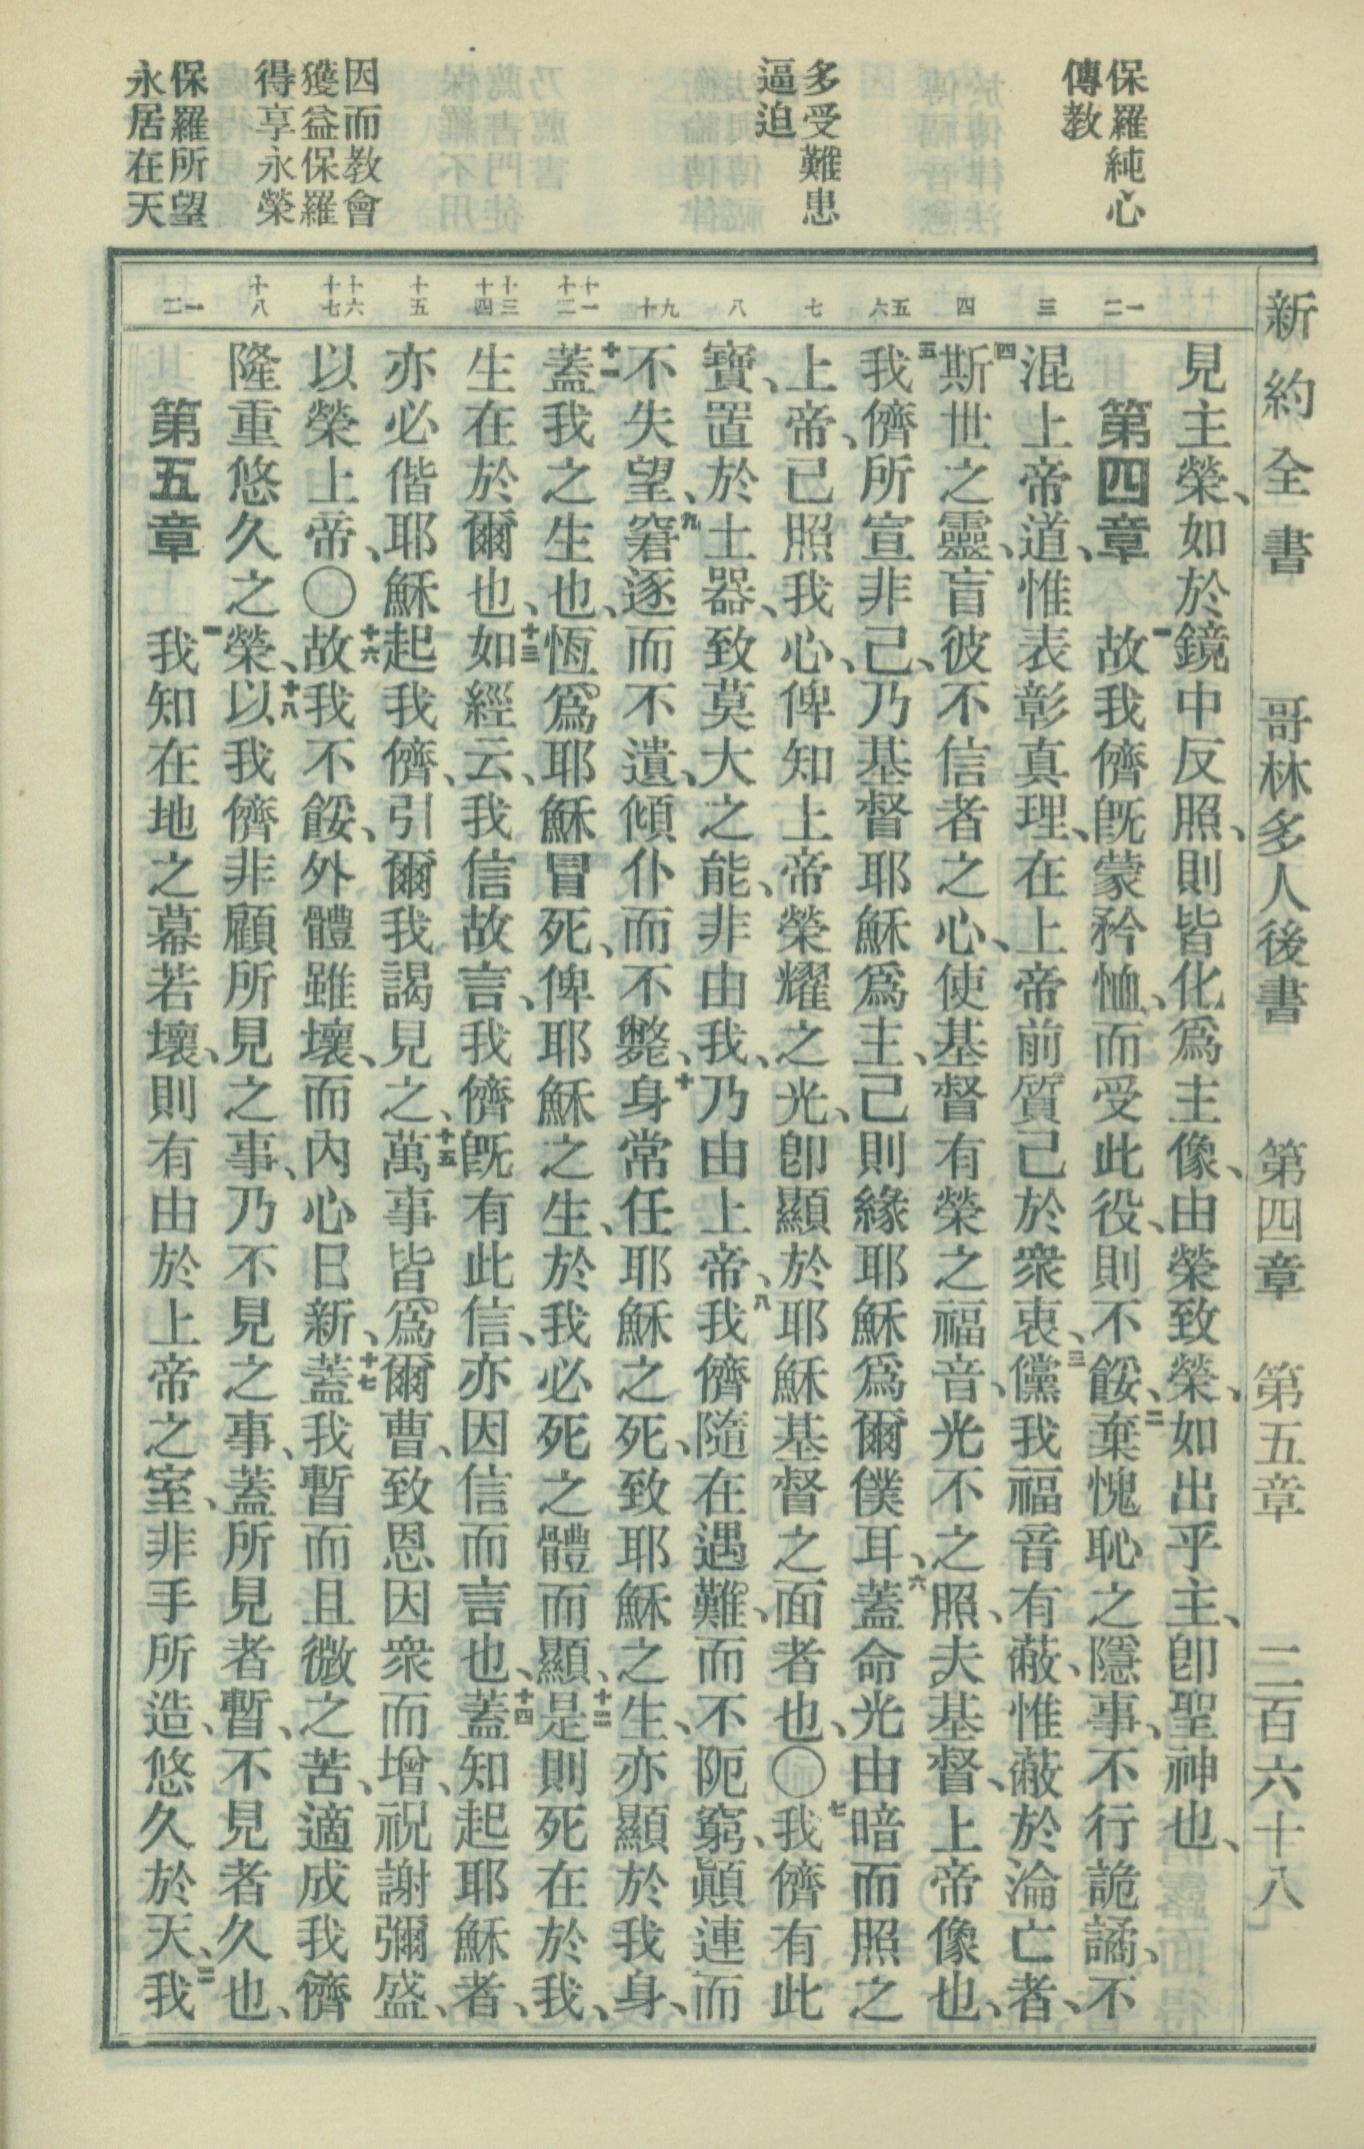 新約全書　哥林多人後書　第四章　第五章　二百六十八
保羅純心
傳教
多受難患
逼迫
因而教會
獲益保羅
得享永榮
保羅所望
永居在天
一二　三　四　五六　七　八　九十　十一十二　十三十四　十五　十六十七　十八　一二
見主榮、如於鏡中反照、則皆化爲主像、由榮致榮、如出乎主、卽聖神也、
第四章　一故我儕旣蒙矜恤、而受此役、則不餒、二棄愧恥之隱事、不行詭譎、不
混上帝道、惟表彰真理、在上帝前質己於衆衷、三儻我福音有蔽、惟蔽於淪亡者、
四斯世之靈、盲彼不信者之心、使基督有榮之福音、光不之照、夫基督、上帝像也、
五我儕所宣非己、乃基督耶穌爲主、己則緣耶穌爲爾僕耳、六蓋命光由暗而照之
上帝、已照我心、俾知上帝榮耀之光、卽顯於耶穌基督之面者也、〇七我儕有此
寶、置於土器、致莫大之能、非由我、乃由上帝、八我儕隨在遇難、而不阨窮、顚連而
不失望、九窘逐而不遺、傾仆而不斃、十身常任耶穌之死、致耶穌之生、亦顯於我身、
十一蓋我之生也、恆爲耶穌冒死、俾耶穌之生、於我必死之體而顯、十二是則死在於我、
生在於爾也、十三如經云、我信故言、我儕旣有此信、亦因信而言也、十四蓋知起耶穌者、
亦必偕耶穌起我儕、引爾我謁見之、十五萬事皆爲爾曹、致恩因衆而增、祝謝彌盛、
以榮上帝、〇十六故我不餒、外體雖壞、而內心日新、十七蓋我暫而且微之苦、適成我儕
隆重悠久之榮、十八以我儕非顧所見之事、乃不見之事、蓋所見者暫、不見者久也、
第五章　一我知在地之幕若壞、則有由於上帝之室、非手所造、悠久於天、二我